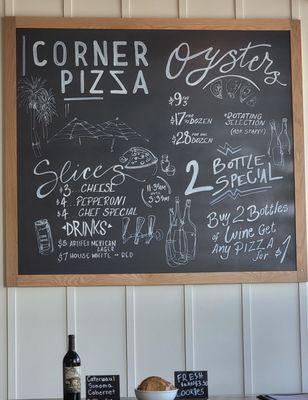 CORNER
PIZZA
Oysters
$9 FOR 3
$17 FOR 1/2 DOZEN
$28 FOR ONE DOZEN
*ROTATING
SELECTION*
(ASK STAFF)
Slices
$3...CHEESE
$4..PEPPERONI
$4 CHEF SPECIAL
11:30AM
-
3:30PM
DRINKS
$5 ARTIFEX MEXICAN
LAGER
$7 HOUSE WHITE OR RED
2 BOTTLE
SPECIAL
BUY 2 BOTTLES
of WINE GET
ANY PIZZA
for $1
Caterwaul
Sonoma
Cabernet
FRESH
BAKED $3.50
COOKIES